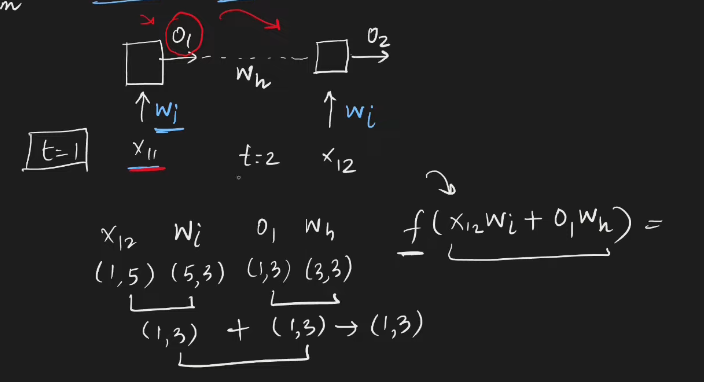 n
O₁ O₂
Wₕ
Wᵢ Wᵢ
t=1 X₁₁ t=2 X₁₂
f(X₁₂Wᵢ + O₁Wₕ) =
X₁₂ Wᵢ O₁ Wₕ
(1,5) (5,3) (1,3) (3,3)
(1,3) + (1,3) → (1,3)